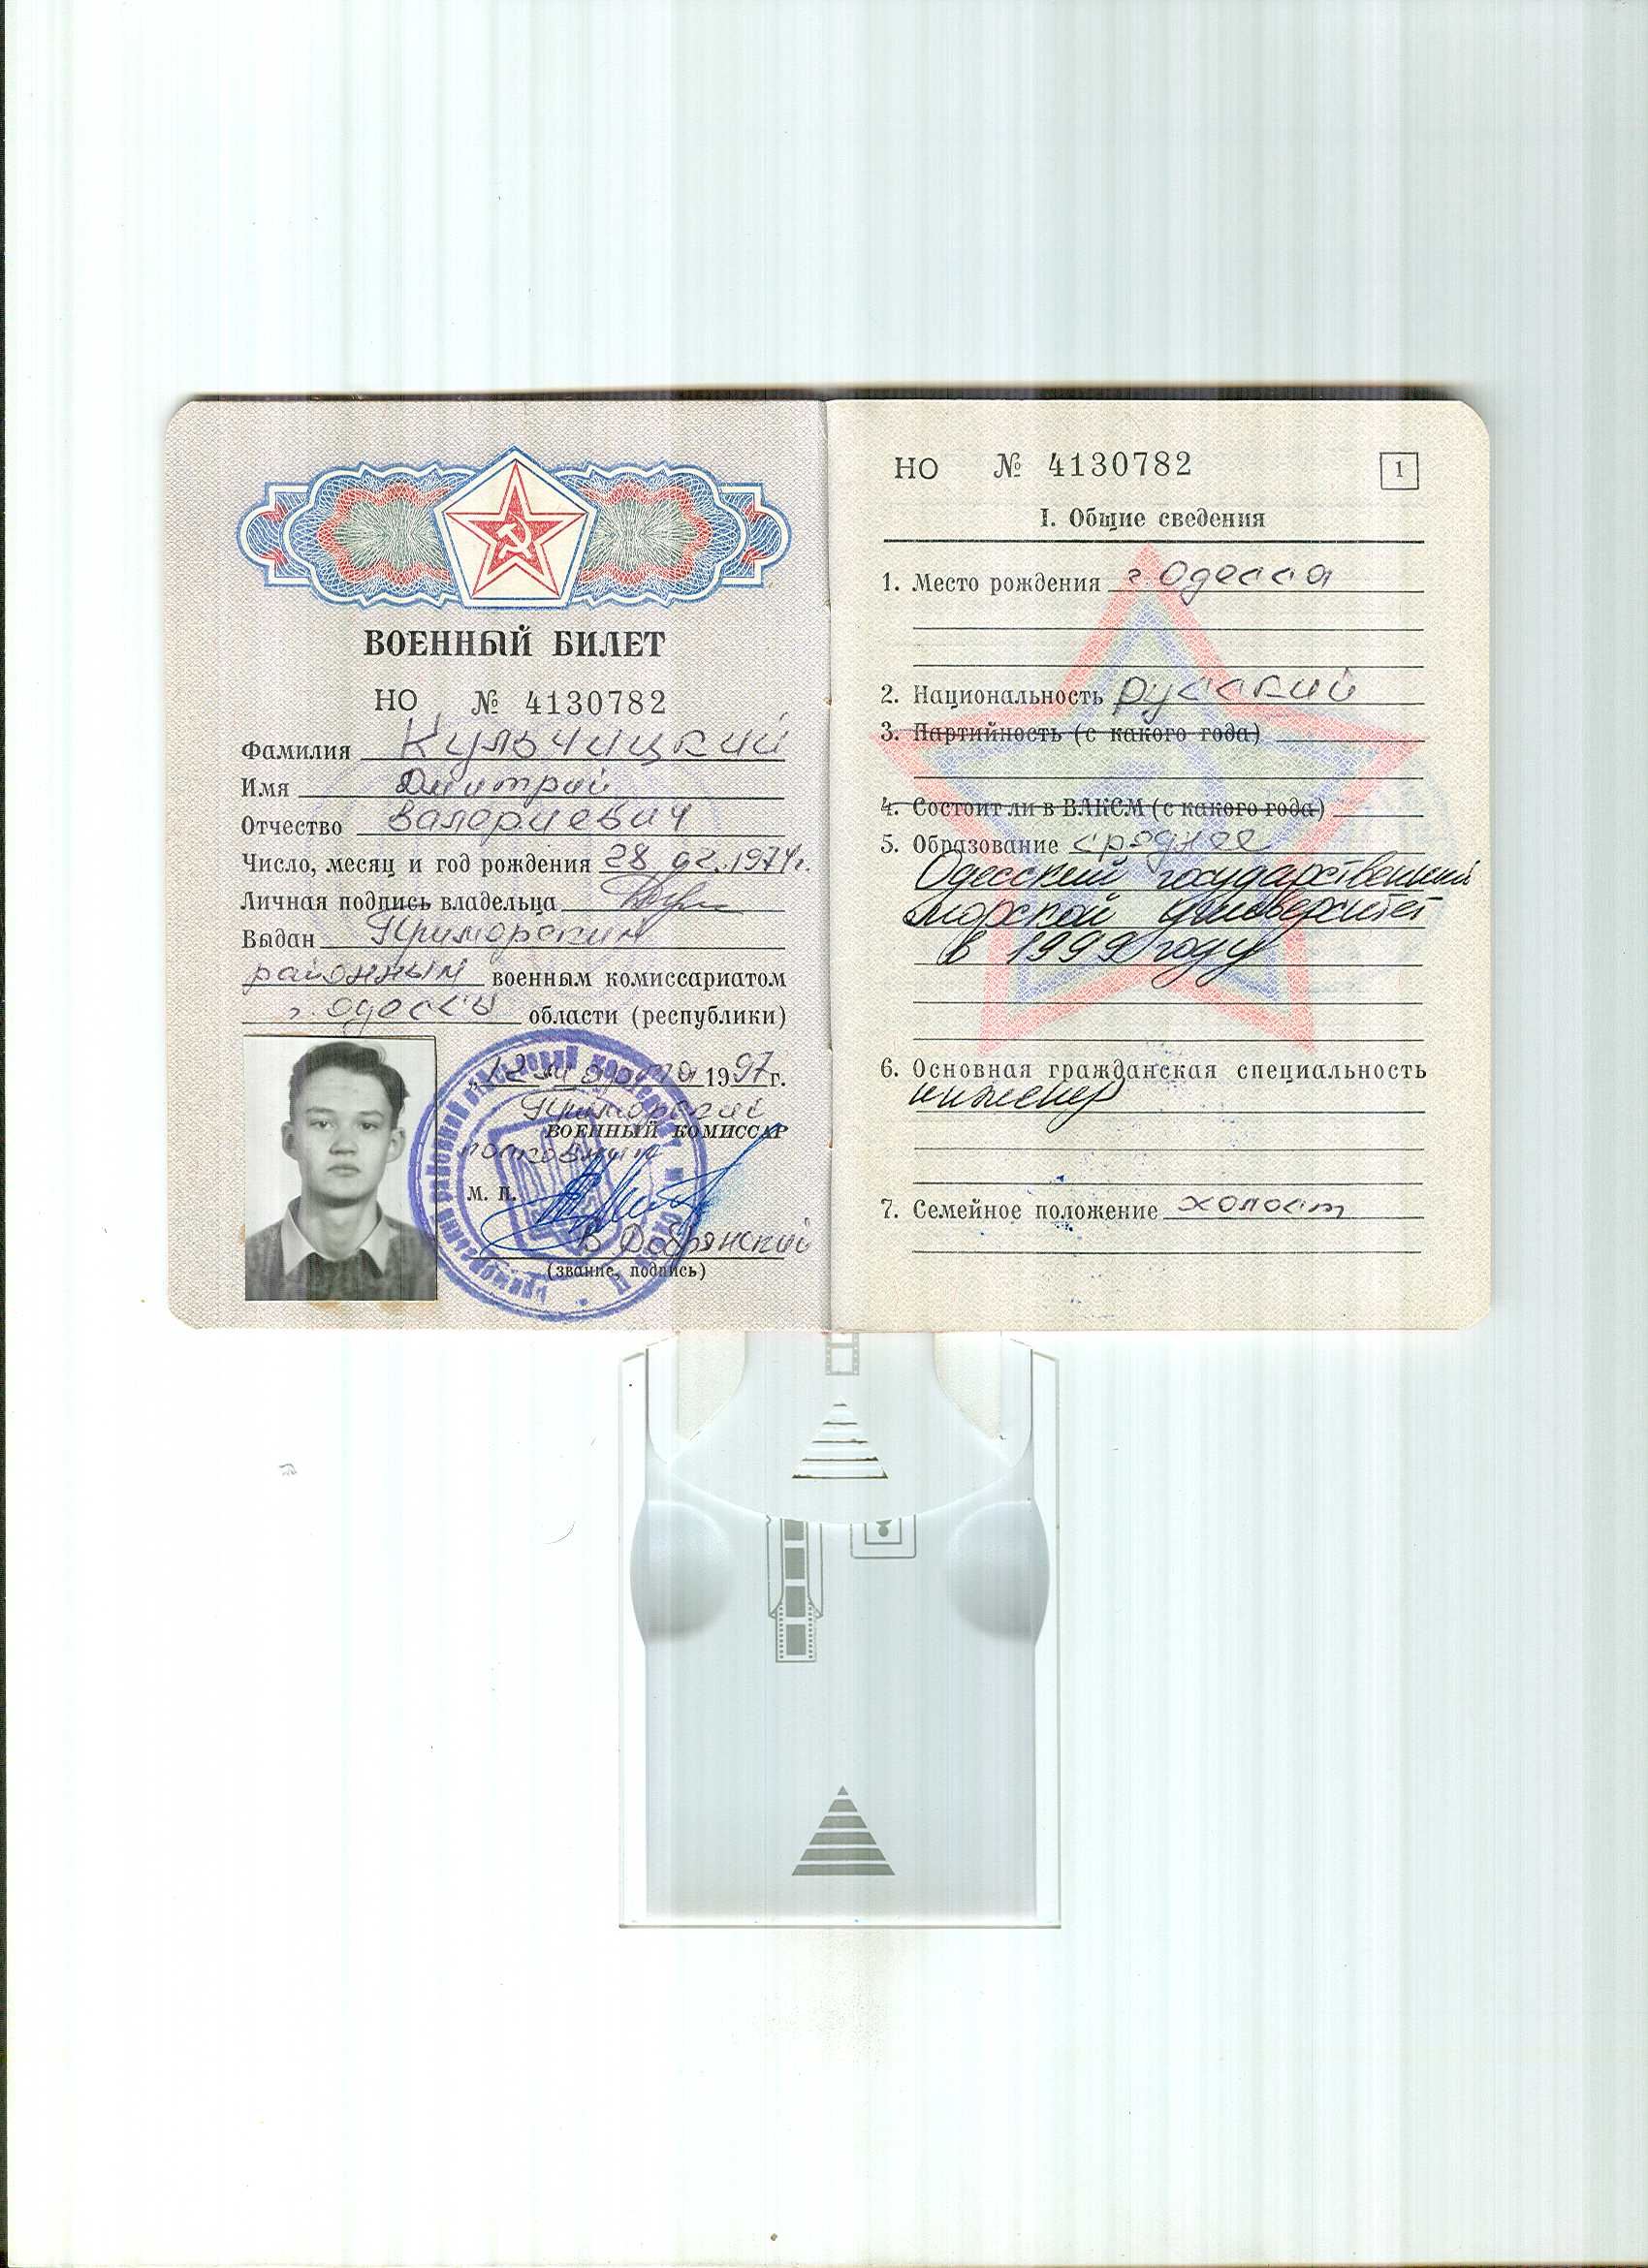 ВОЕННЫЙ БИЛЕТ
НО № 4130782
Фамилия Кульчицкий
Имя Дмитрий
Отчество Валериевич
Число, месяц и год рождения 28.02.1974г.
Личная подпись владельца
Выдан Приморским
районным военным комиссариатом
г. Одессы области (республики)
"12" марта 1997г.
Приморский
ВОЕННЫЙ КОМИССАР
полковник
М. П.
В Добрянский
(звание, подпись)
НО № 4130782 1
I. Общие сведения
1. Место рождения г Одесса
2. Национальность русский
3. Партийность (с какого года)
4. Состоит ли в ВЛКСМ (с какого года)
5. Образование среднее
Одесский государственный
морской университет
в 1999 году
6. Основная гражданская специальность
инженер
7. Семейное положение холост